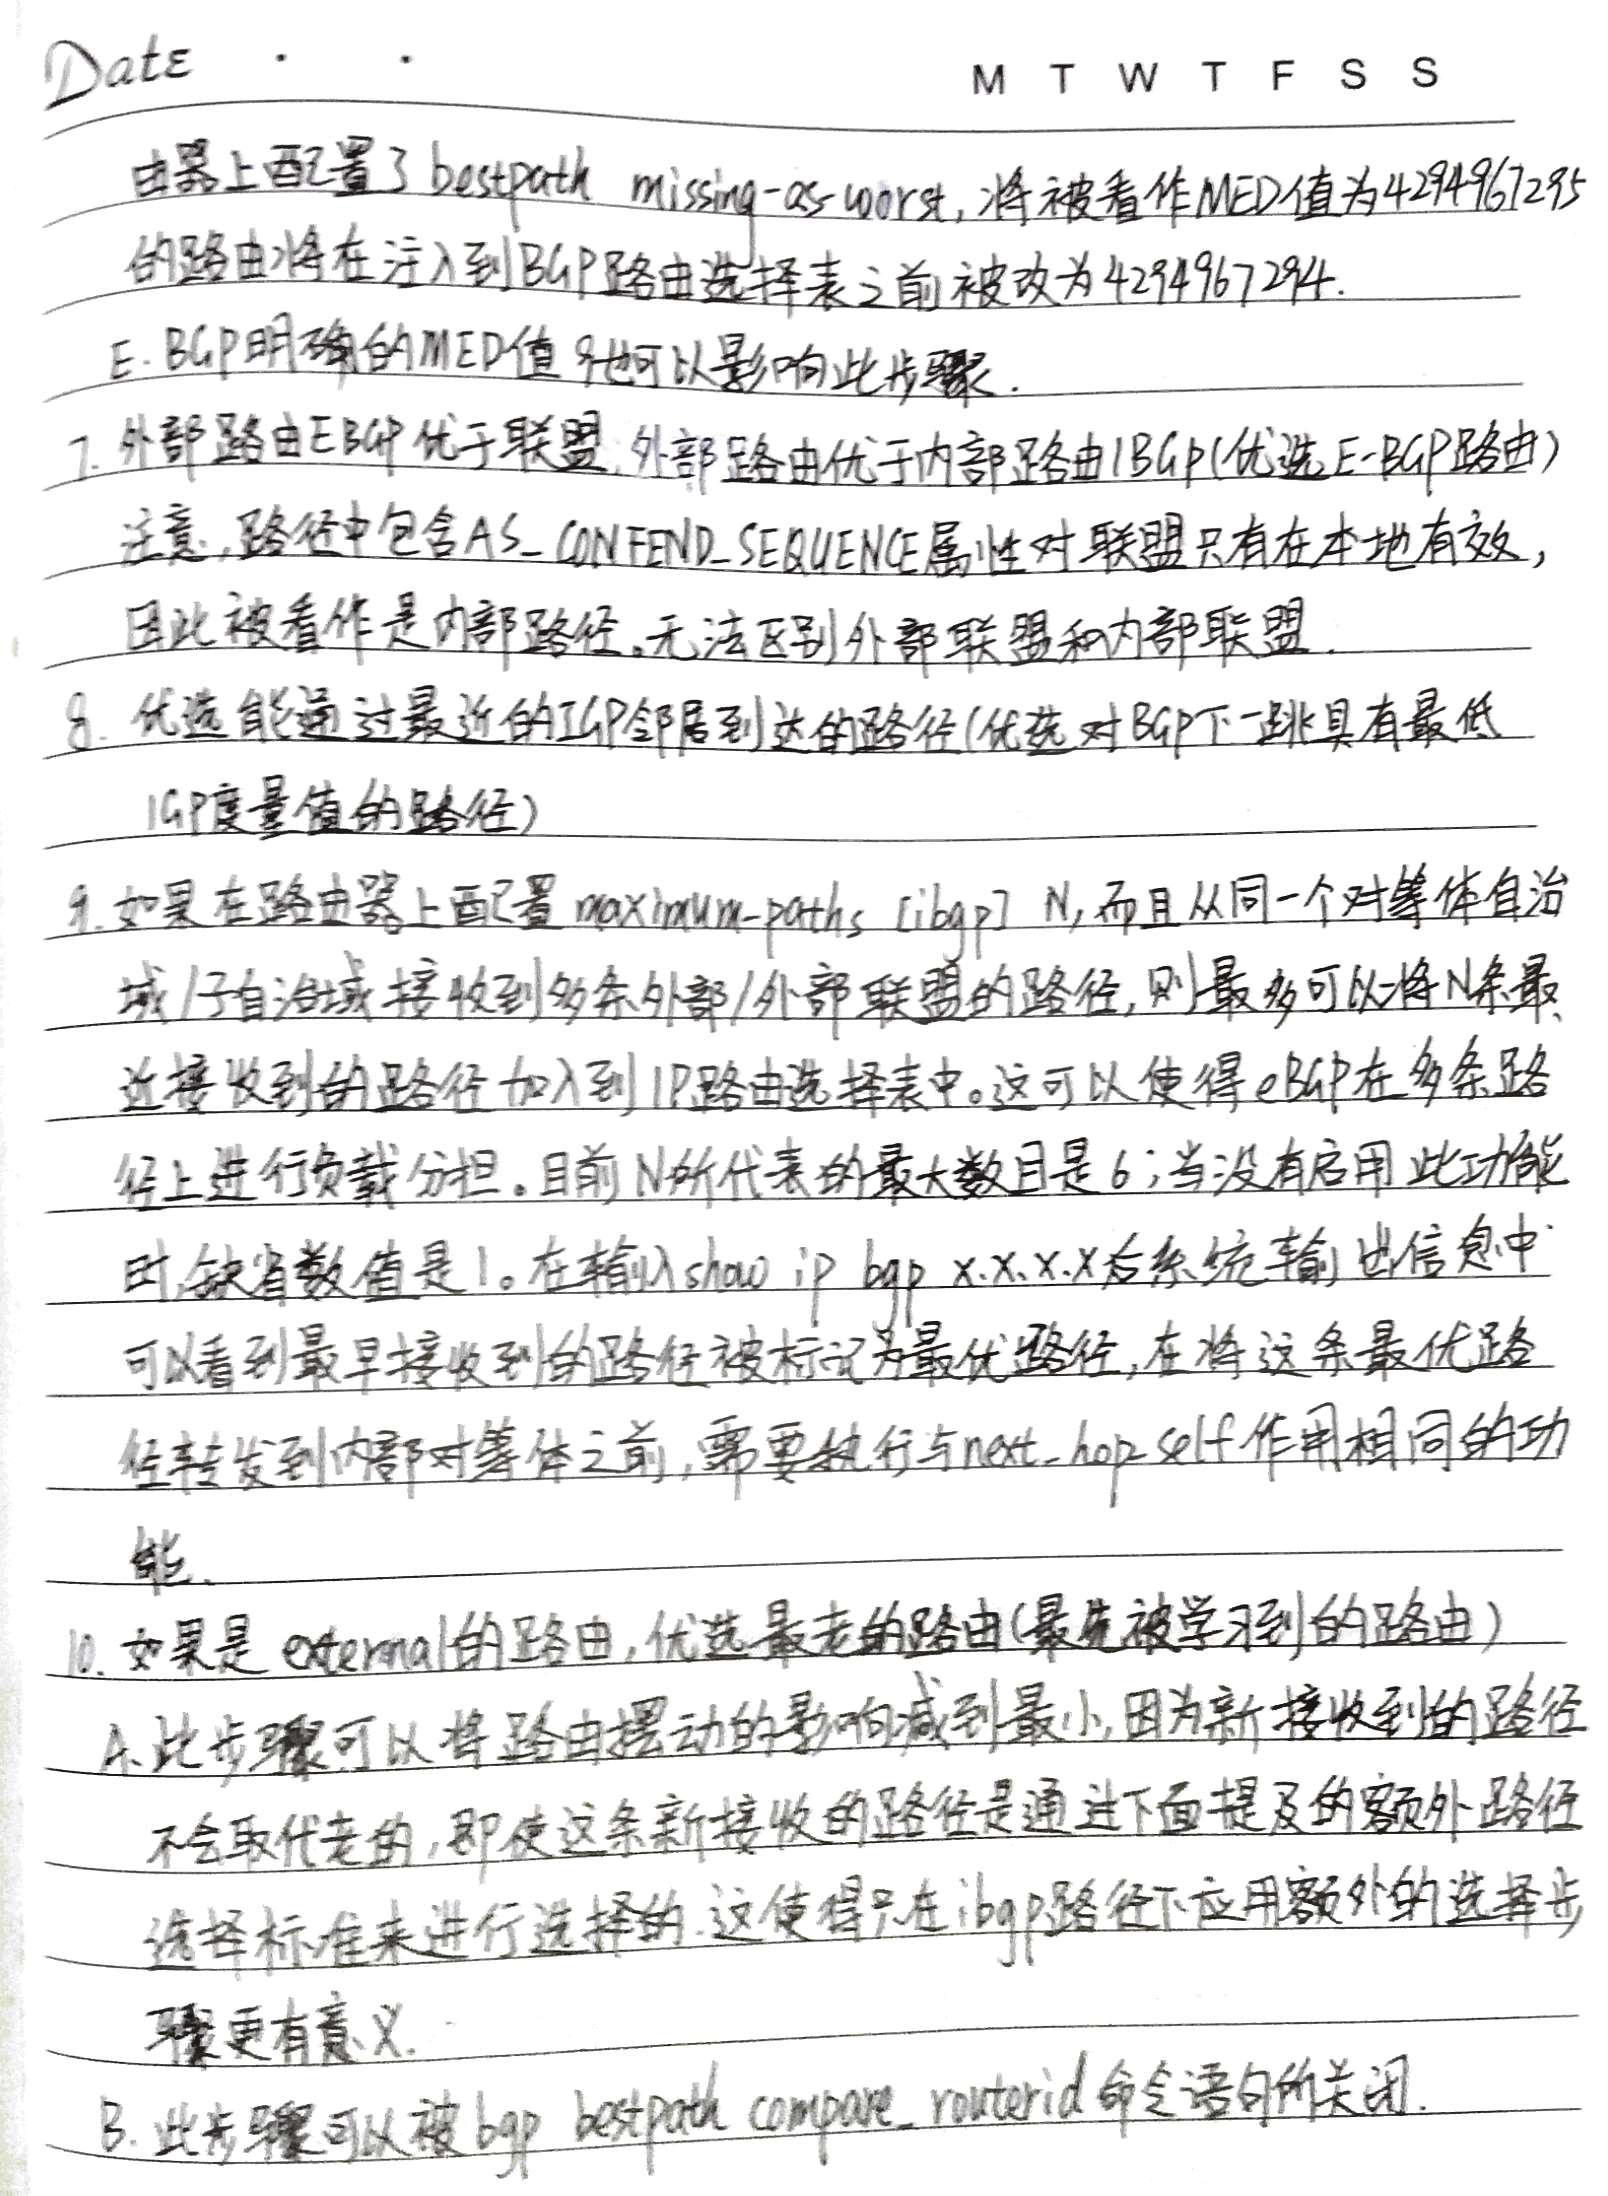 Date . .
M T W T F S S
由器上配置了 bestpath missing-as-worst, 将被看作MED值为4294967295
的路由将在注入到BGP路由选择表之前被改为4294967294.
E. BGP明确的MED值也可以影响此步骤.
7. 外部路由EBGP优于联盟,外部路由优于内部路由IBGP(优选E-BGP路由)
注意,路径中包含AS_CONFEND_SEQUENCE属性对联盟只有在本地有效,
因此被看作是内部路径。无法区别外部联盟和内部联盟.
8. 优选能通过最近的IGP邻居到达的路径(优选对BGP下一跳具有最低
IGP度量值的路径)
9. 如果在路由器上配置 maximum-paths [ibgp] N, 而且从同一个对等体自治
域/子自治域接收到多条外部/外部联盟的路径,则最多可以将N条最
近接收到的路径加入到IP路由选择表中。这可以使得eBGP在多条路
径上进行负载分担。目前N所代表的最大数目是6;当没有启用此功能
时,缺省数值是1。在输入show ip bgp x.x.x.x后系统输出信息中
可以看到最早接收到的路径被标记为最优路径,在将这条最优路
径转发到内部对等体之前,需要执行与next_hop-self作用相同的功
能.
10. 如果是external的路由,优选最老的路由(最先被学习到的路由)
A. 此步骤可以将路由摆动的影响减到最小,因为新接收到的路径
不会取代老的,即使这条新接收的路径是通过下面提及的额外路径
选择标准来进行选择的.这使得只在ibgp路径下应用额外的选择步
骤更有意义.
B. 此步骤可以被bgp bestpath compare_routerid命令语句所关闭.